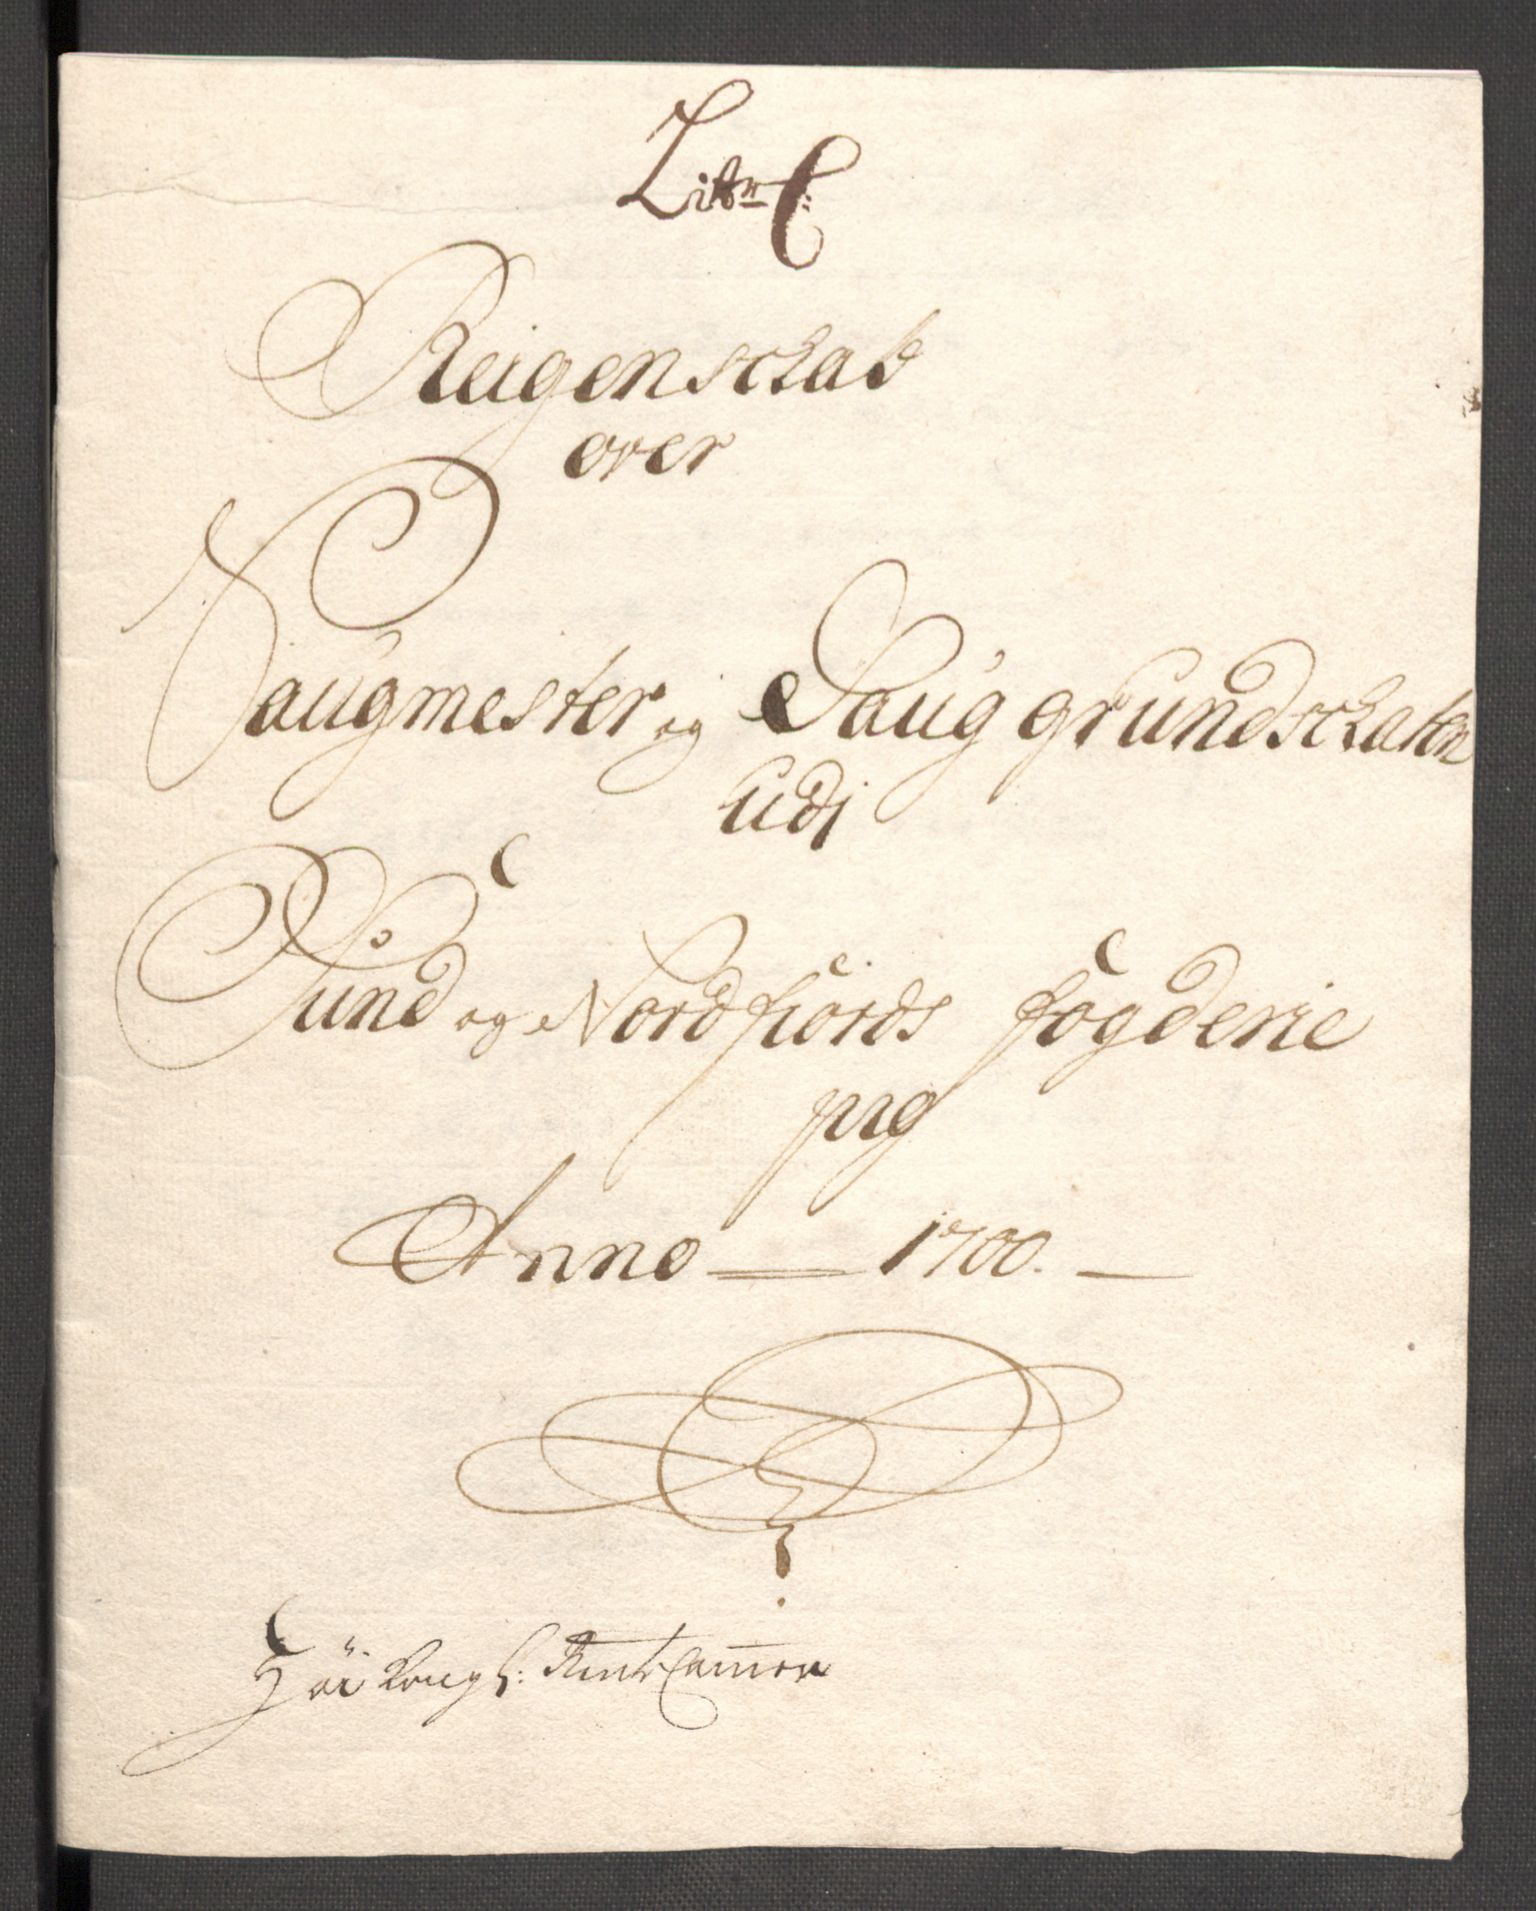 Litr C:
Reigenschab
over
Saugmester og Sauggrundschaten
Udj
Sund og Nordfiords fogderie
prg
Anno 1700.
Kongl: RentCammer